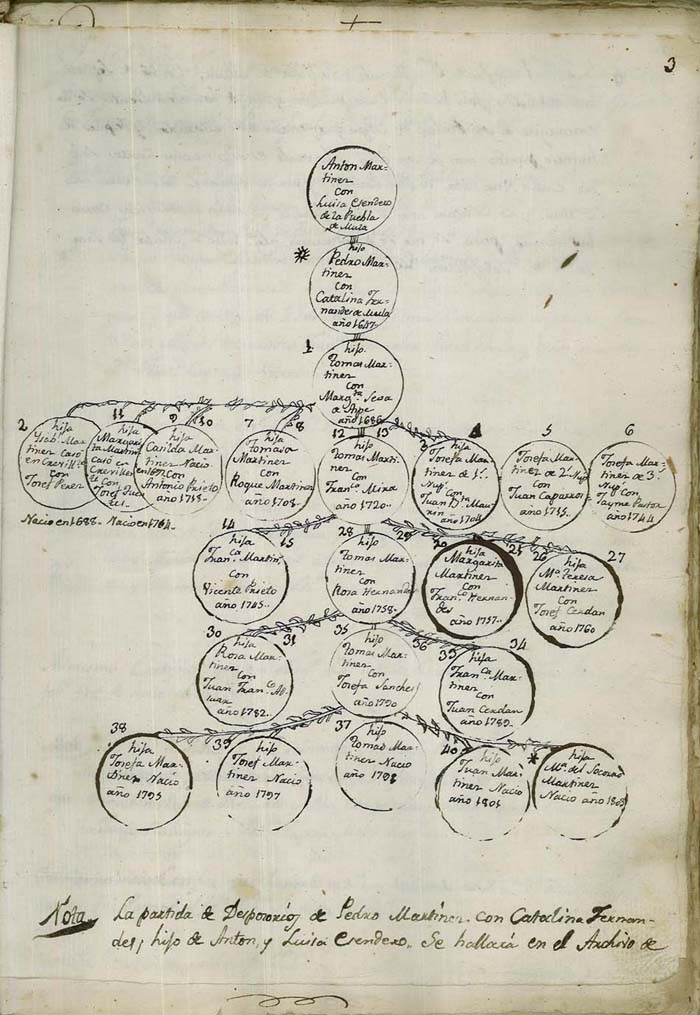 3
Anton Mar-
tinez
con
Luisa Esendero
de la Puebla
de Mula
hijo
Pedro Mar-
tinez
con
Catalina Fer-
nandes de Mula
año 1647
1
hijo
Tomas Mar-
tinez
con
Marg.ta Sesa
de Aspe
año 1686
2
hija
Ysab.l Mar-
tinez Casó
en Crevill.te
con
Josef Perez
Nacio en 1688
11
hija
Margari-
ta Martinez
Casó en
Crevillen-
te con
Josef
Nacio en 1704
9
10
hija
Casilda Mar-
tinez Nacio
con
Antonio Prieto
año 1718
7
8
hija
Tomasa
Martinez
con
Roque Martinez
año 1708
12
13
hijo
Tomas Marti-
nez
con
Fran.ca Mira
año 1720
3
4
hija
Josefa Mar-
tinez de 1.s
Nup.s
Con
Juan
año 1704
5
Josefa Mar-
tinez de 2.s Nup.s
con
Juan Caparros
año 1715
6
Josefa Mar-
tinez de 3.s
Nup.s
con
Jayme Pastor
año 1744
14
15
hija
Fran.ca Martin.z
con
Vicente Prieto
año 1745
28
hijo
Tomas Mar-
tinez
con
Rosa Hernandez
año 1758
29
hija
Margarita
Martinez
con
Fran.co Hernan-
des
año 1757
25
26
27
hija
M.a Teresa
Martinez
Con
Josef Cerdan
año 1760
30
31
hija
Rosa Mar-
tinez
con
Juan Fran.co
año 1782
35
hijo
Tomas Mar-
tinez
con
Josefa Sanches
año 1790
36
33
34
hija
Fran.ca Mar-
tinez
con
Juan Cerdan
año 1789
38
hija
Josefa Mar-
tinez Nacio
año 1795
39
hijo
Josef Mar-
tinez Nacio
año 1797
37
hijo
Tomas Mar-
tinez Nacio
año 1791
40
hijo
Juan Mar-
tinez Nacio
año 1801
hija
M.a del Socorro
Martinez
Nacio año 1803
Nota La partida de Desposorios de Pedro Martinez con Catalina Fernan-
des, hijo de Anton, y Luisa Esendero. Se hallará en el Archivo de